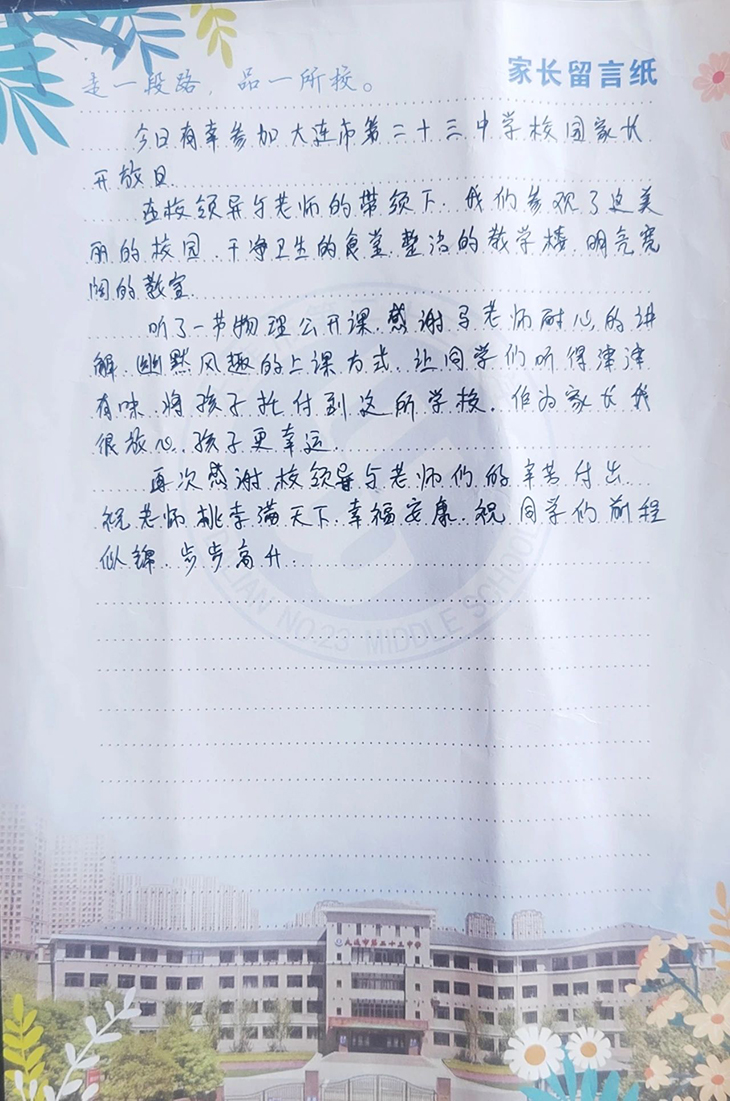 家长留言纸
走一段路，品一所校。
今日有幸参加大连市第二十三中学校园家长
开放日.
在校领导与老师的带领下.我们参观了这美
丽的校园.干净卫生的食堂.整洁的教学楼.明亮宽
阔的教室.
听了一节物理公开课.感谢马老师耐心的讲
解.幽默风趣的上课方式.让同学们听得津津
有味.将孩子托付到这所学校.作为家长我
很放心.孩子更幸运.
再次感谢校领导与老师们的辛苦付出.
祝老师桃李满天下.幸福安康.祝同学们前程
似锦.步步高升.
DALIAN NO.23 MIDDLE SCHOOL
大连市第二十三中学